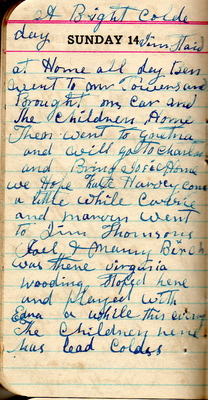 A Bright Colde
day
SUNDAY 14 Jim Staid
at Home all day Ben
went to mr Towers and
Brought our car and
The Children Home
Theas went to Goretna
and will go to Charlot
and Bring Josie Home
we Hope that Harvey come
a little while Carrie
and marvin went
to Jim Thomsons
Joel & Manny Birch
was there virginia
wooding Stoped here
and Played with
Edna a while this evning
The Children here
has lead Coldes